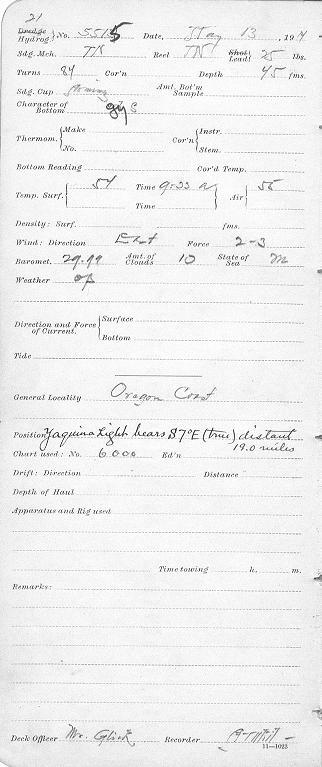 21
Dredge
Hydrog. No. 5515 Date, May 13, 191
Sdg. Mch. TN Reel TN Shot Lead 25 lbs.
Turns 84 Cor'n Depth 45 fms.
Sdg. Cup Amt. Bot'm Sample
Character of Bottom
Thermom. Make Cor'n Instr.
No. Stem.
Bottom Reading Cor'd Temp.
Temp. Surf. 54 Time 9:33 a Air 55
Time
Density: Surf. fms.
Wind: Direction East Force 2-3
Baromet. 29.99 Amt. of Clouds 10 State of Sea M
Weather op
Direction and Force of Current. Surface
Bottom
Tide
General Locality Oregon Coast
Position Yaquina Light bears S7°E (true) distant
19.0 miles
Chart used: No. 6000 Ed'n
Drift: Direction Distance
Depth of Haul
Apparatus and Rig used
Time towing h. m.
Remarks:
Deck Officer Mr. Recorder
11—1023